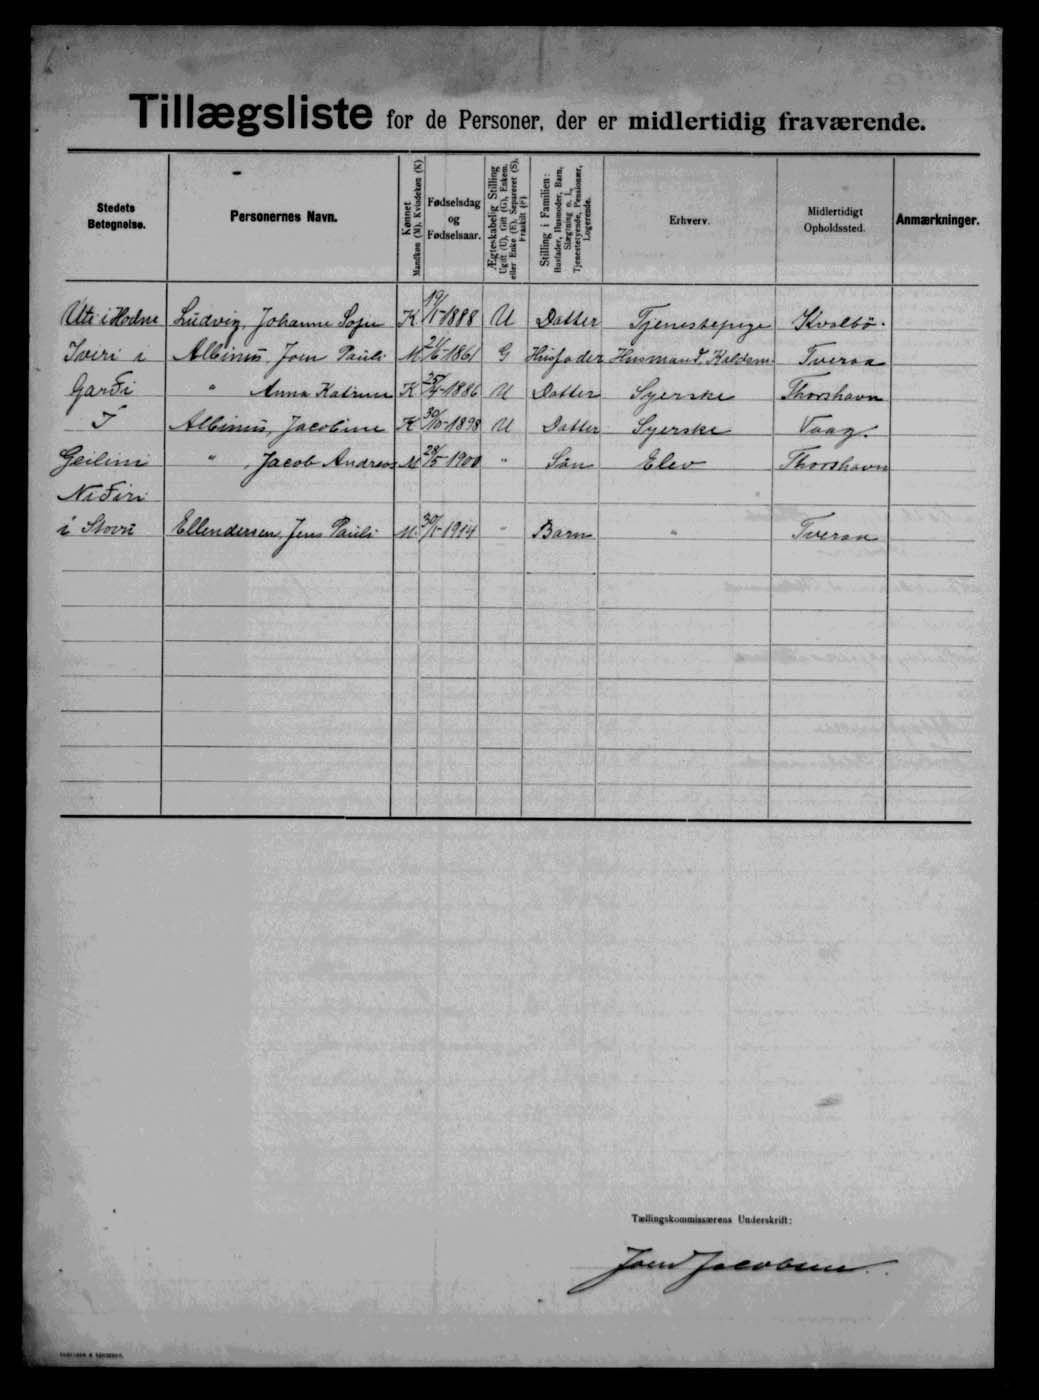 Tillægsliste for de Personer, der er midlertidig fraværende.
Stedets Betegnelse. Personernes Navn. Kønnet Mandkøn (M), Kvindekøn (K) Fødselsdag og Fødselsaar. Ægteskabelig Stilling Ugift (U), Gift (G), Enkem. eller Enke (E), Separeret (S), Fraskilt (F) Stilling i Familien: Husfader, Husmoder, Barn, Slægtning o. l., Tjenestetyende, Pensionær, Logerende. Erhverv. Midlertidigt Opholdssted. Anmærkninger.
Uti i Hodne Ludvig, Johanne Sofie K 19/1-1888 U Datter Tjenestepige Kvalbö.
Iveri i Albinus, Joen Pauli M 2/6-1861 G Husfader Husmand Tveraa
Garði " Anna Katrine K 25/4-1886 U Datter Syerske Thorshavn
Í Albinus, Jacobine K 30/10-1898 U Datter Syerske Vaag.
Geilini " , Jacob Andreas M 28/5-1900 " Sön Elev Thorshavn
Niðiri
i Stovu Ellendersen, Jens Pauli M. 30/1-1914 " Barn " Tveraa
Tællingskommissærens Underskrift:
Joen Jacobsen.